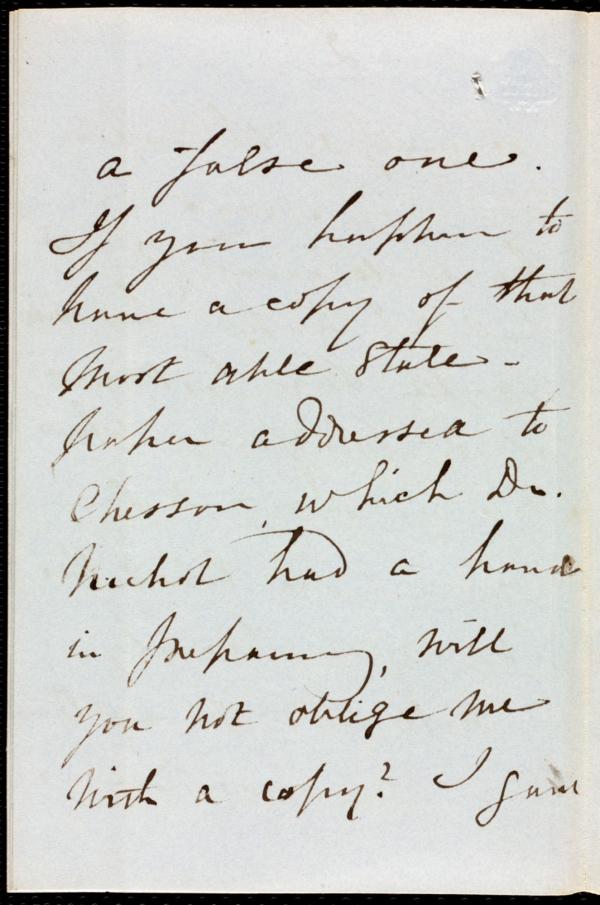 a false one.
If you happen to
have a copy of that
most able State-
paper addressed to
Chesson, which Dr.
Nichol had a hand
in preparing, will
you not oblige me
with a copy? I gave